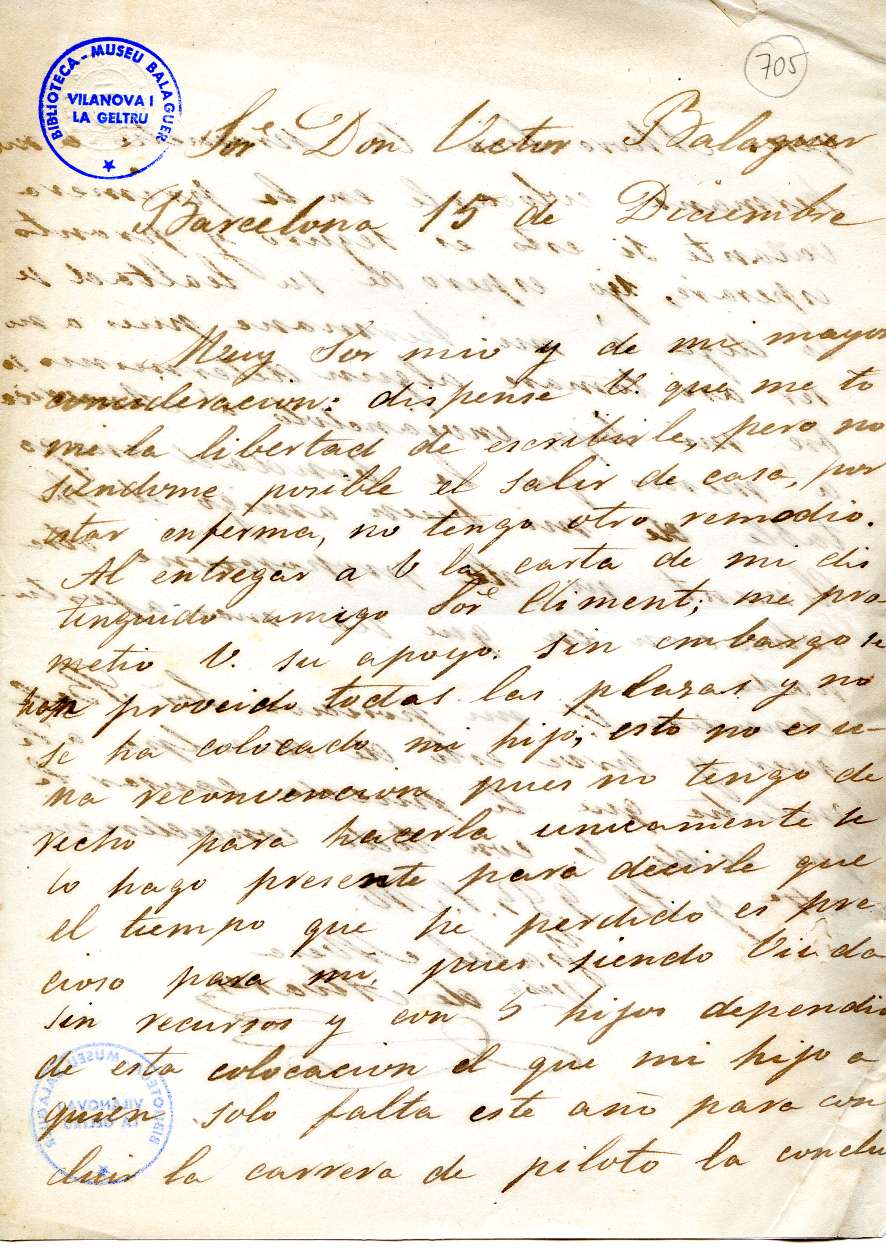 705
BIBLIOTECA-MUSEU BALAGUER
VILANOVA I
LA GELTRU
Sor Don Victor Balaguer
Barcelona 15 de Diciembre
Muy Sor mio y de mi mayor
consideracion: dispense V. que me to
me la libertad de escribirle, pero no
siendome posible el salir de casa, por
estar enferma, no tengo otro remedio.
Al entregar a V la carta de mi dis
tinguido amigo Sor Climent; me pro-
metio V. su apoyo. sin embargo se
han proveido todas las plazas y no
se ha colocado mi hijo; esto no es u-
na reconvencion pues no tengo de
recho para hacerla unicamente se
lo hago presente para decirle que
el tiempo que he perdido es pre
cioso para mi, pues siendo Viuda
sin recursos y con 5 hijos dependia
de esta colocacion el que mi hijo a
quien solo falta este año para con
cluir la carrera de piloto la conclu